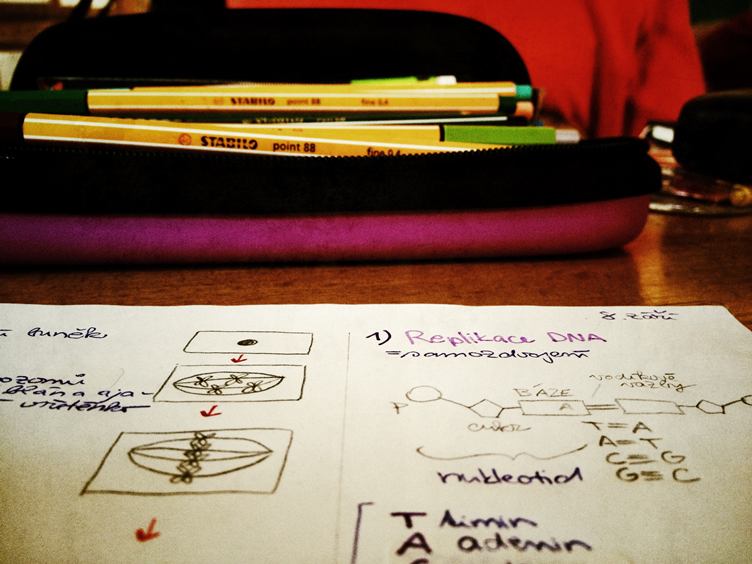 STABILO point 88 fine 0.4
STABILO point 88 fine 0.4
buněk
vřeténko
8. září
1) Replikace DNA
= samozdvojení
vodíkové
vazby
BÁZE
P
A
cukr
T=A
A=T
C≡G
G≡C
nukleotid
T timin
A adenin